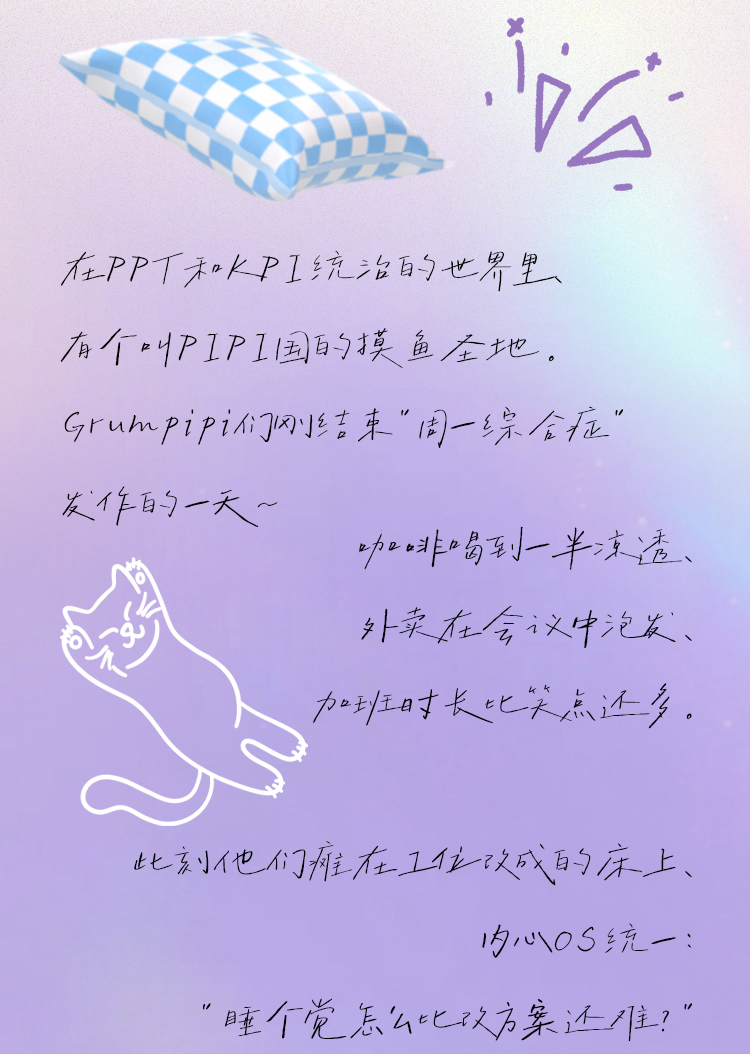 在PPT和KPI统治的世界里、
有个叫PIPI国的摸鱼圣地。
Grumpipi们刚结束"周一综合症"
发作的一天~
咖啡喝到一半凉透、
外卖在会议中泡发、
加班时长比笑点还多。
此刻他们瘫在工位改成的床上、
内心OS统一：
"睡个觉怎么比改方案还难?"